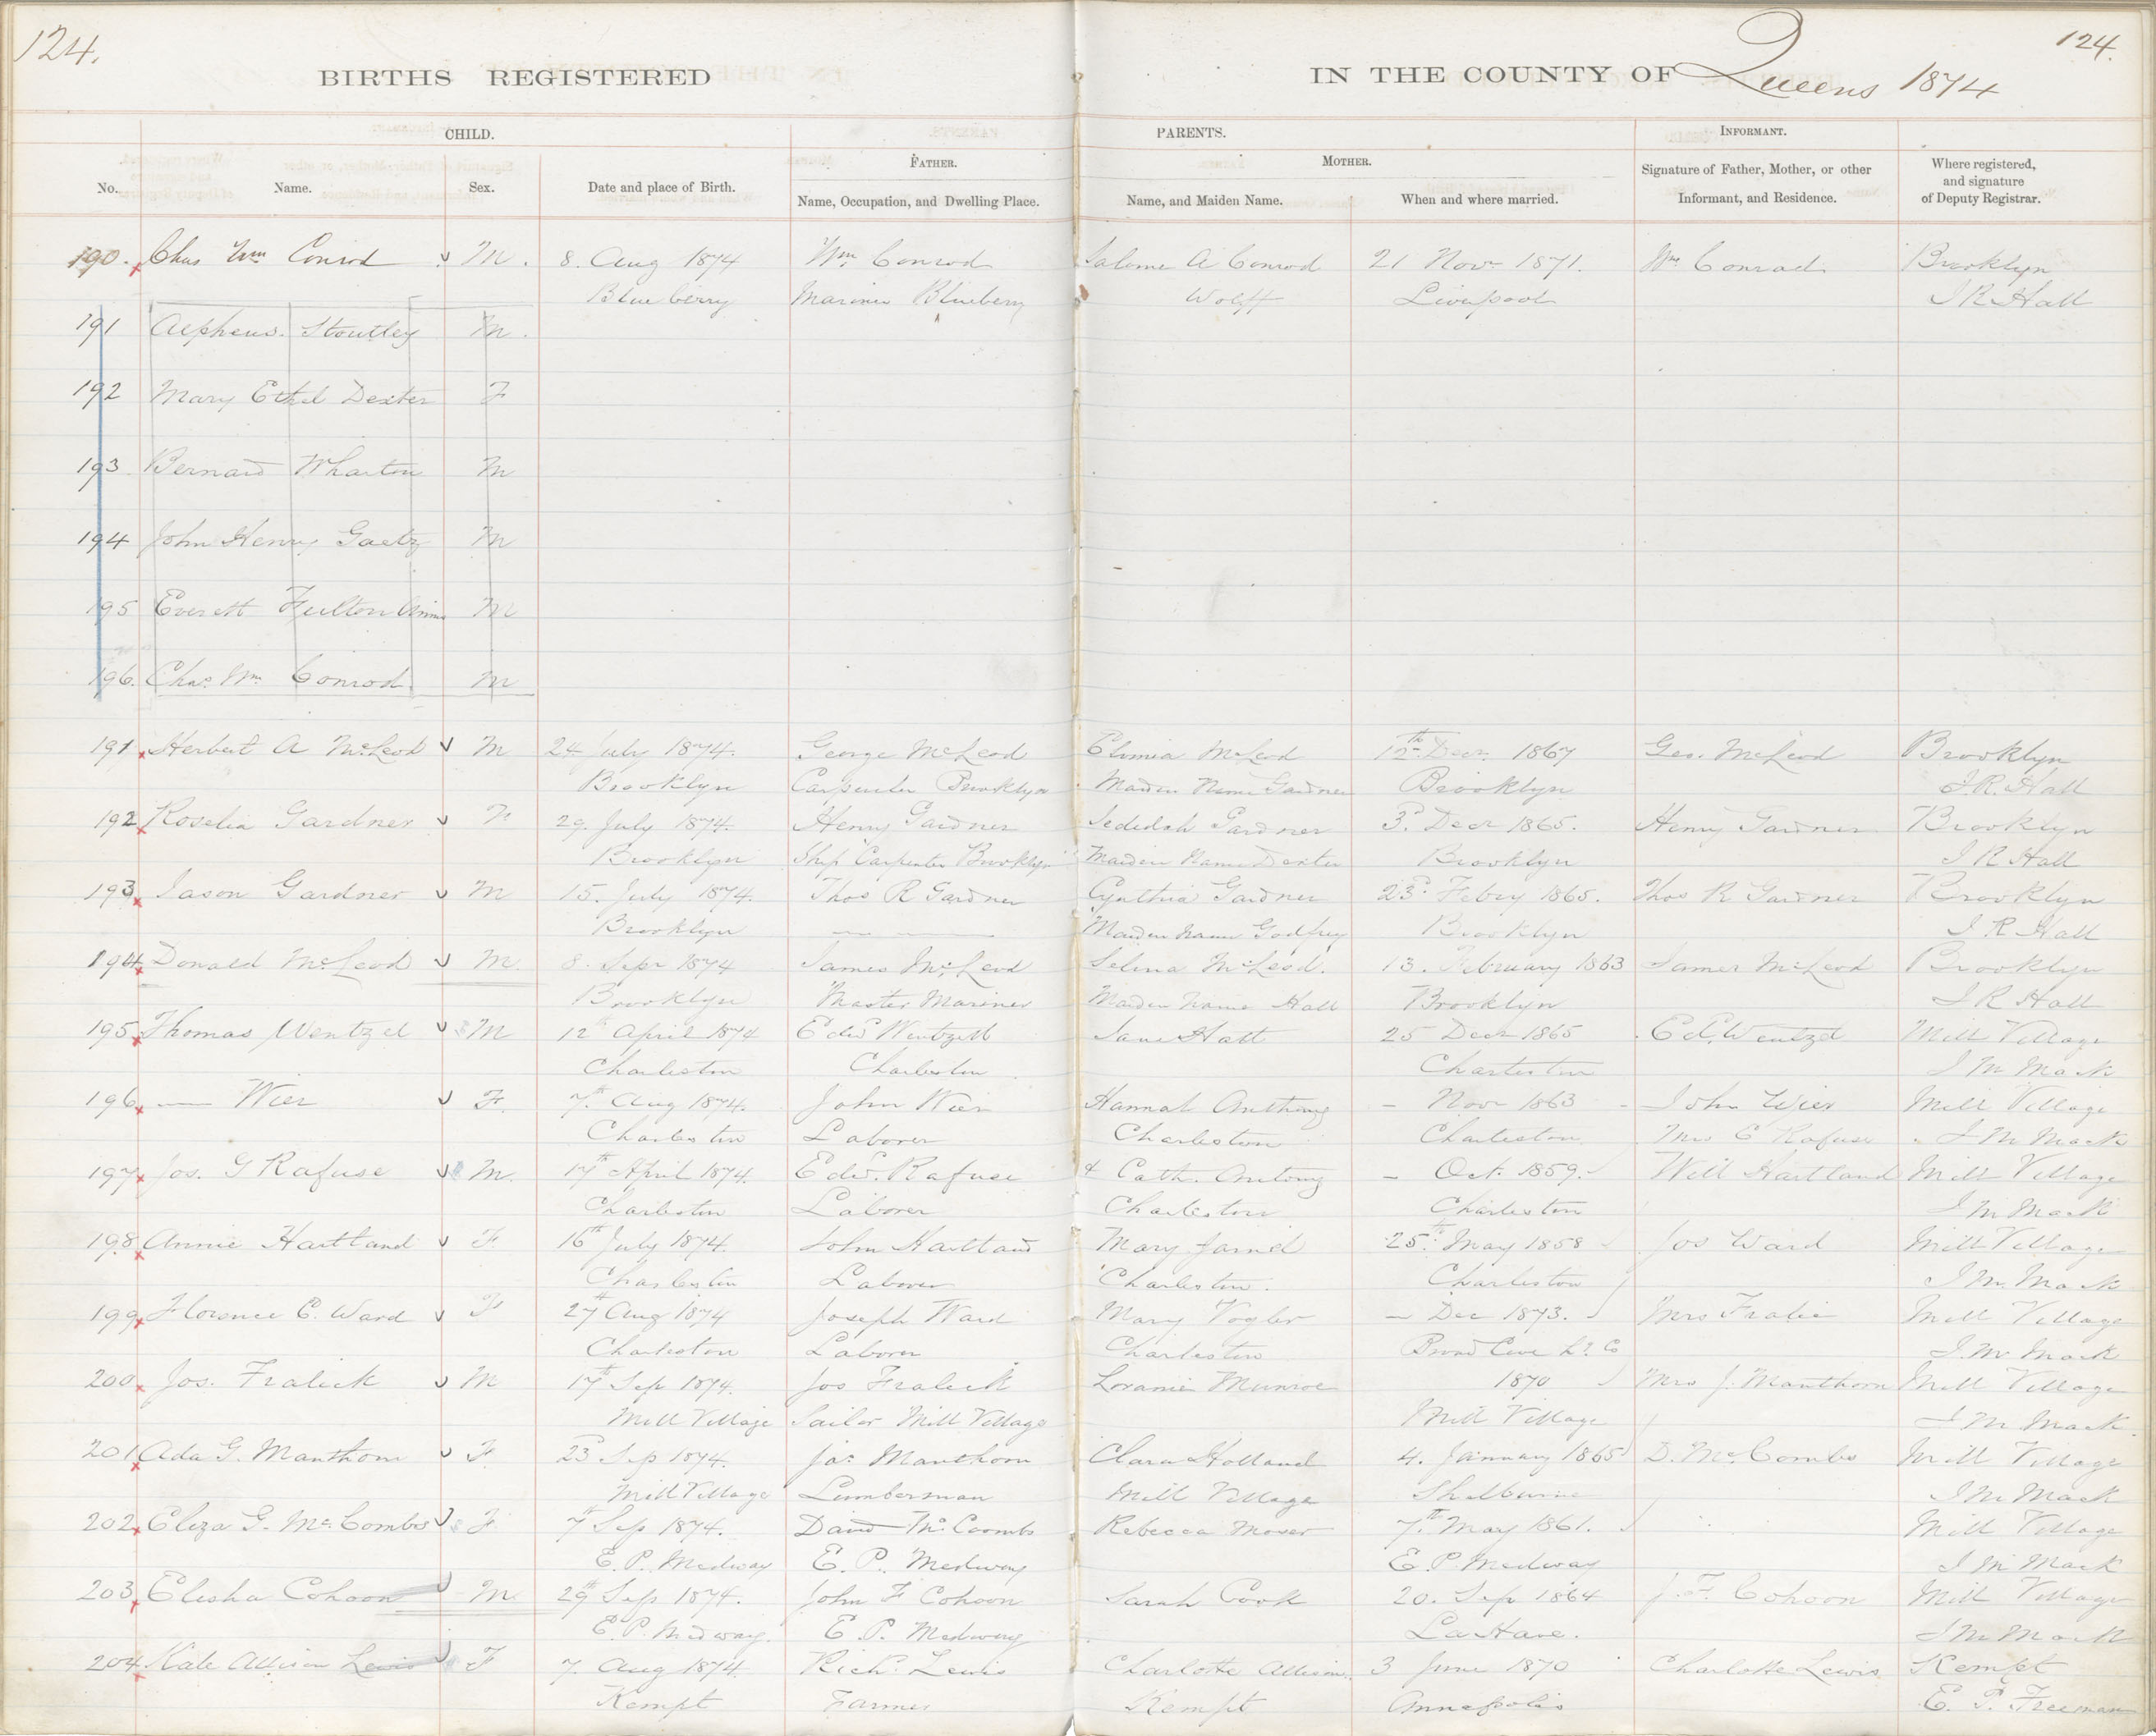 124.
124.
BIRTHS REGISTERED
IN THE COUNTY OF Queens 1874
CHILD.
PARENTS.
INFORMANT.
FATHER.
MOTHER.
No. Name. Sex. Date and place of Birth. Name, Occupation, and Dwelling Place. Name, and Maiden Name. When and where married. Signature of Father, Mother, or other Informant, and Residence. Where registered, and signature of Deputy Registrar.
190. Chas Wm Conrod M. 8. Aug 1874 Wm Conrod Salome A Conrod 21 Nov 1871. Wm Conrad Brooklyn
Blueberry Mariner Blueberry Wolff Liverpool J R Hall
191 Alpheus Stoutley M.
192 Mary Ethel Dexter F
193 Bernard Wharton M
194 John Henry Gaetz M
195 Everett Fulton M
196. Chas. Wm. Conrod. M
191 Herbert A McLeod M 24 July 1874. George McLeod McLeod 12th Decr 1867 Geo. McLeod Brooklyn
Brooklyn Carpenter Brooklyn Maiden Name Gardner Brooklyn J. R. Hall
192 Roselia Gardner 29. July 1874. Henry Gardner Jedidah Gardner 3d. Decr 1865. Henry Gardner Brooklyn
Brooklyn Ship Carpenter Brooklyn Maiden Name Dexter Brooklyn J R Hall
193 Jason Gardner M 15. July 1874. Thos R Gardner Cynthia Gardner 23d. Febry 1865. Thos R Gardner Brooklyn
Brooklyn Maiden name Godfrey Brooklyn J R Hall
194 Donald McLeod M. 8. Sepr 1874 James McLeod Selina McLeod. 13. February 1863 James McLeod Brooklyn
Brooklyn Master Mariner Maiden name Hall Brooklyn J R Hall
195 Thomas Wentzel M 12th April 1874 Edwd Wentzell Jane Hatt 25 Decr 1865 Ed. Wentzel Mill Village
Charleston Charleston Charleston J M Mack
196 — Wier F. 7th Aug 1874. John Wier Hannah Anthony – Novr 1863 John Wier Mill Village
Charleston Laborer Charleston Charleston Mrs E Rafuse J M Mack
197 Jos. G Rafuse M. 17th April 1874. Edwd. Rafuse & Cath. Antony – Oct. 1859. Will Hartland Mill Village
Charleston Laborer Charleston Charleston J M Mack
198 Annie Hartland F. 16th July 1874. John Hartland Mary 25th May 1858 Jos Ward Mill Village
Charleston Laborer Charleston. Charleston J M. Mack
199 Florence E. Ward F 27th Aug 1874 Joseph Ward Mary Vogler – Dec 1873. Mrs Mill Village
Charleston Laborer Charleston Broad Cove J. M Mack
200 Jos. Fralick M 17th Sep 1874. Jos Fralick Munroe 1870 Mrs J. Manthorn Mill Village
Mill Village Sailor Mill Village Mill Village J M Mack.
201 Ada G. Manthorn F. 23d Sep 1874. Jas. Manthorn Clara Holland 4. January 1865 D. McCombs Mill Village
Mill Village Lumberman Mill Village Shelburne J M Mack
202 Eliza G. McCombs F 7th Sep 1874. David McCoombs Rebecca Moser 7th May 1861. Mill Village
E. P. Medway E. P. Medway E P Medway J M Mack
203 Elisha Cohoon M. 29th Sep 1874. John F Cohoon Sarah Cook 20. Sep 1864 J. F. Cohoon Mill Village
E. P. Medway. E P. Medway La Have. J M Mack
204 Kate Allison Lewis F 7. Aug 1874. Richd. Lewis Charlotte Allison 3 June 1870 Charlotte Lewis Kempt
Kempt Farmer Kempt Annapolis E. P. Freeman